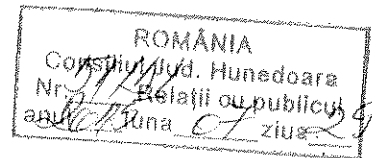 ROMÂNIA
Consiliul Jud. Hunedoara
Nr. Relații cu publicul
anul luna 07 ziua 29